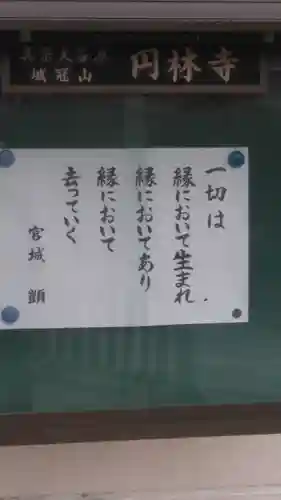 真宗大谷派
城冠山
円林寺
一切は
縁において生まれ
縁においてあり
縁において
去っていく
宮城 顗